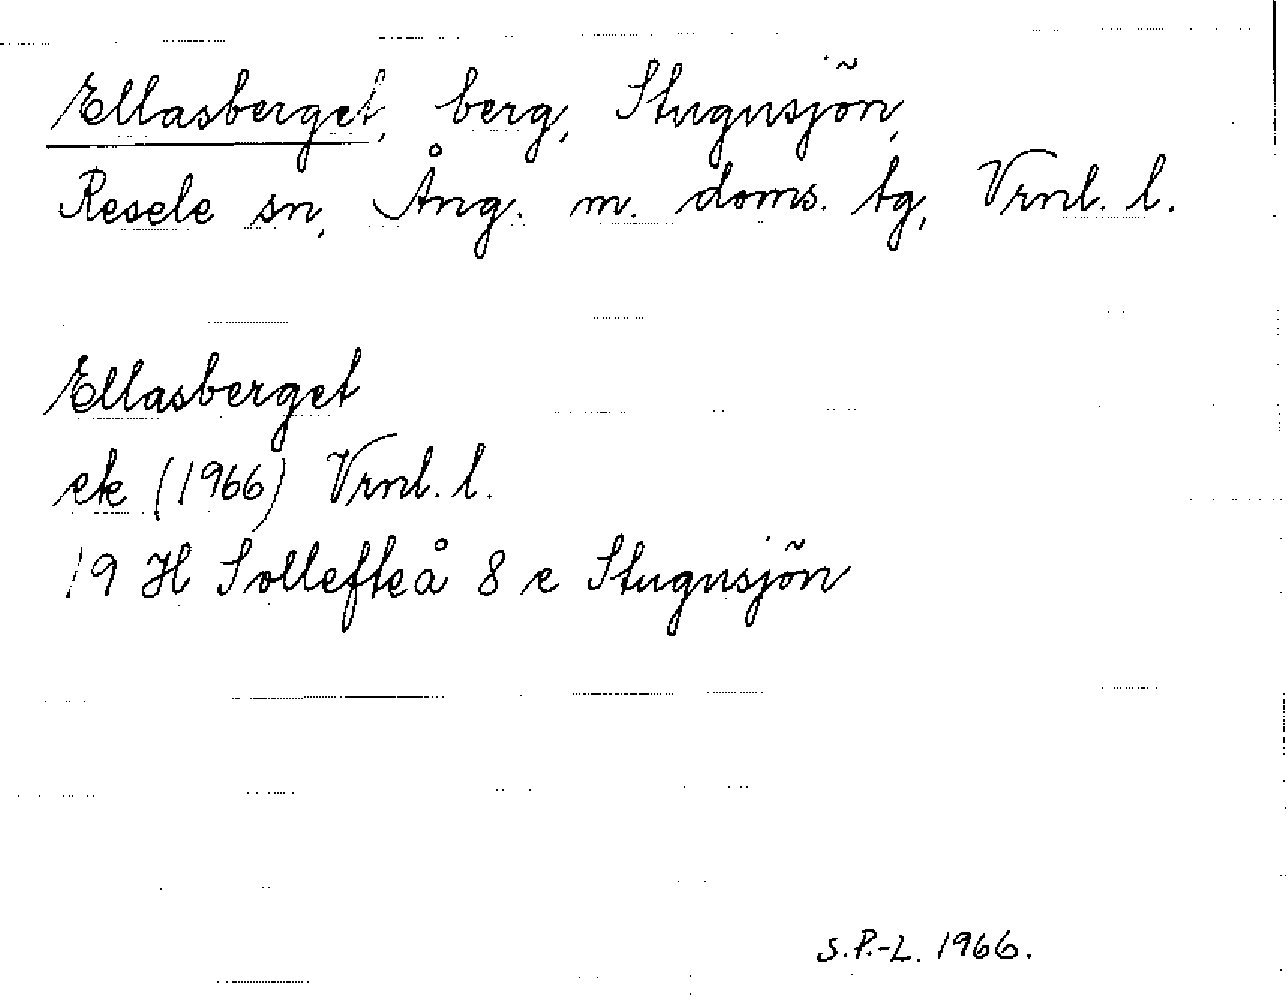 Ellasberget, berg, Stugusjön,
Resele sn, Ång. m. doms. tg, Vrnl. l.
Ellasberget
ek (1966) Vrnl. l.
19 H Sollefteå 8 e Stugusjön
S.P.-L. 1966.